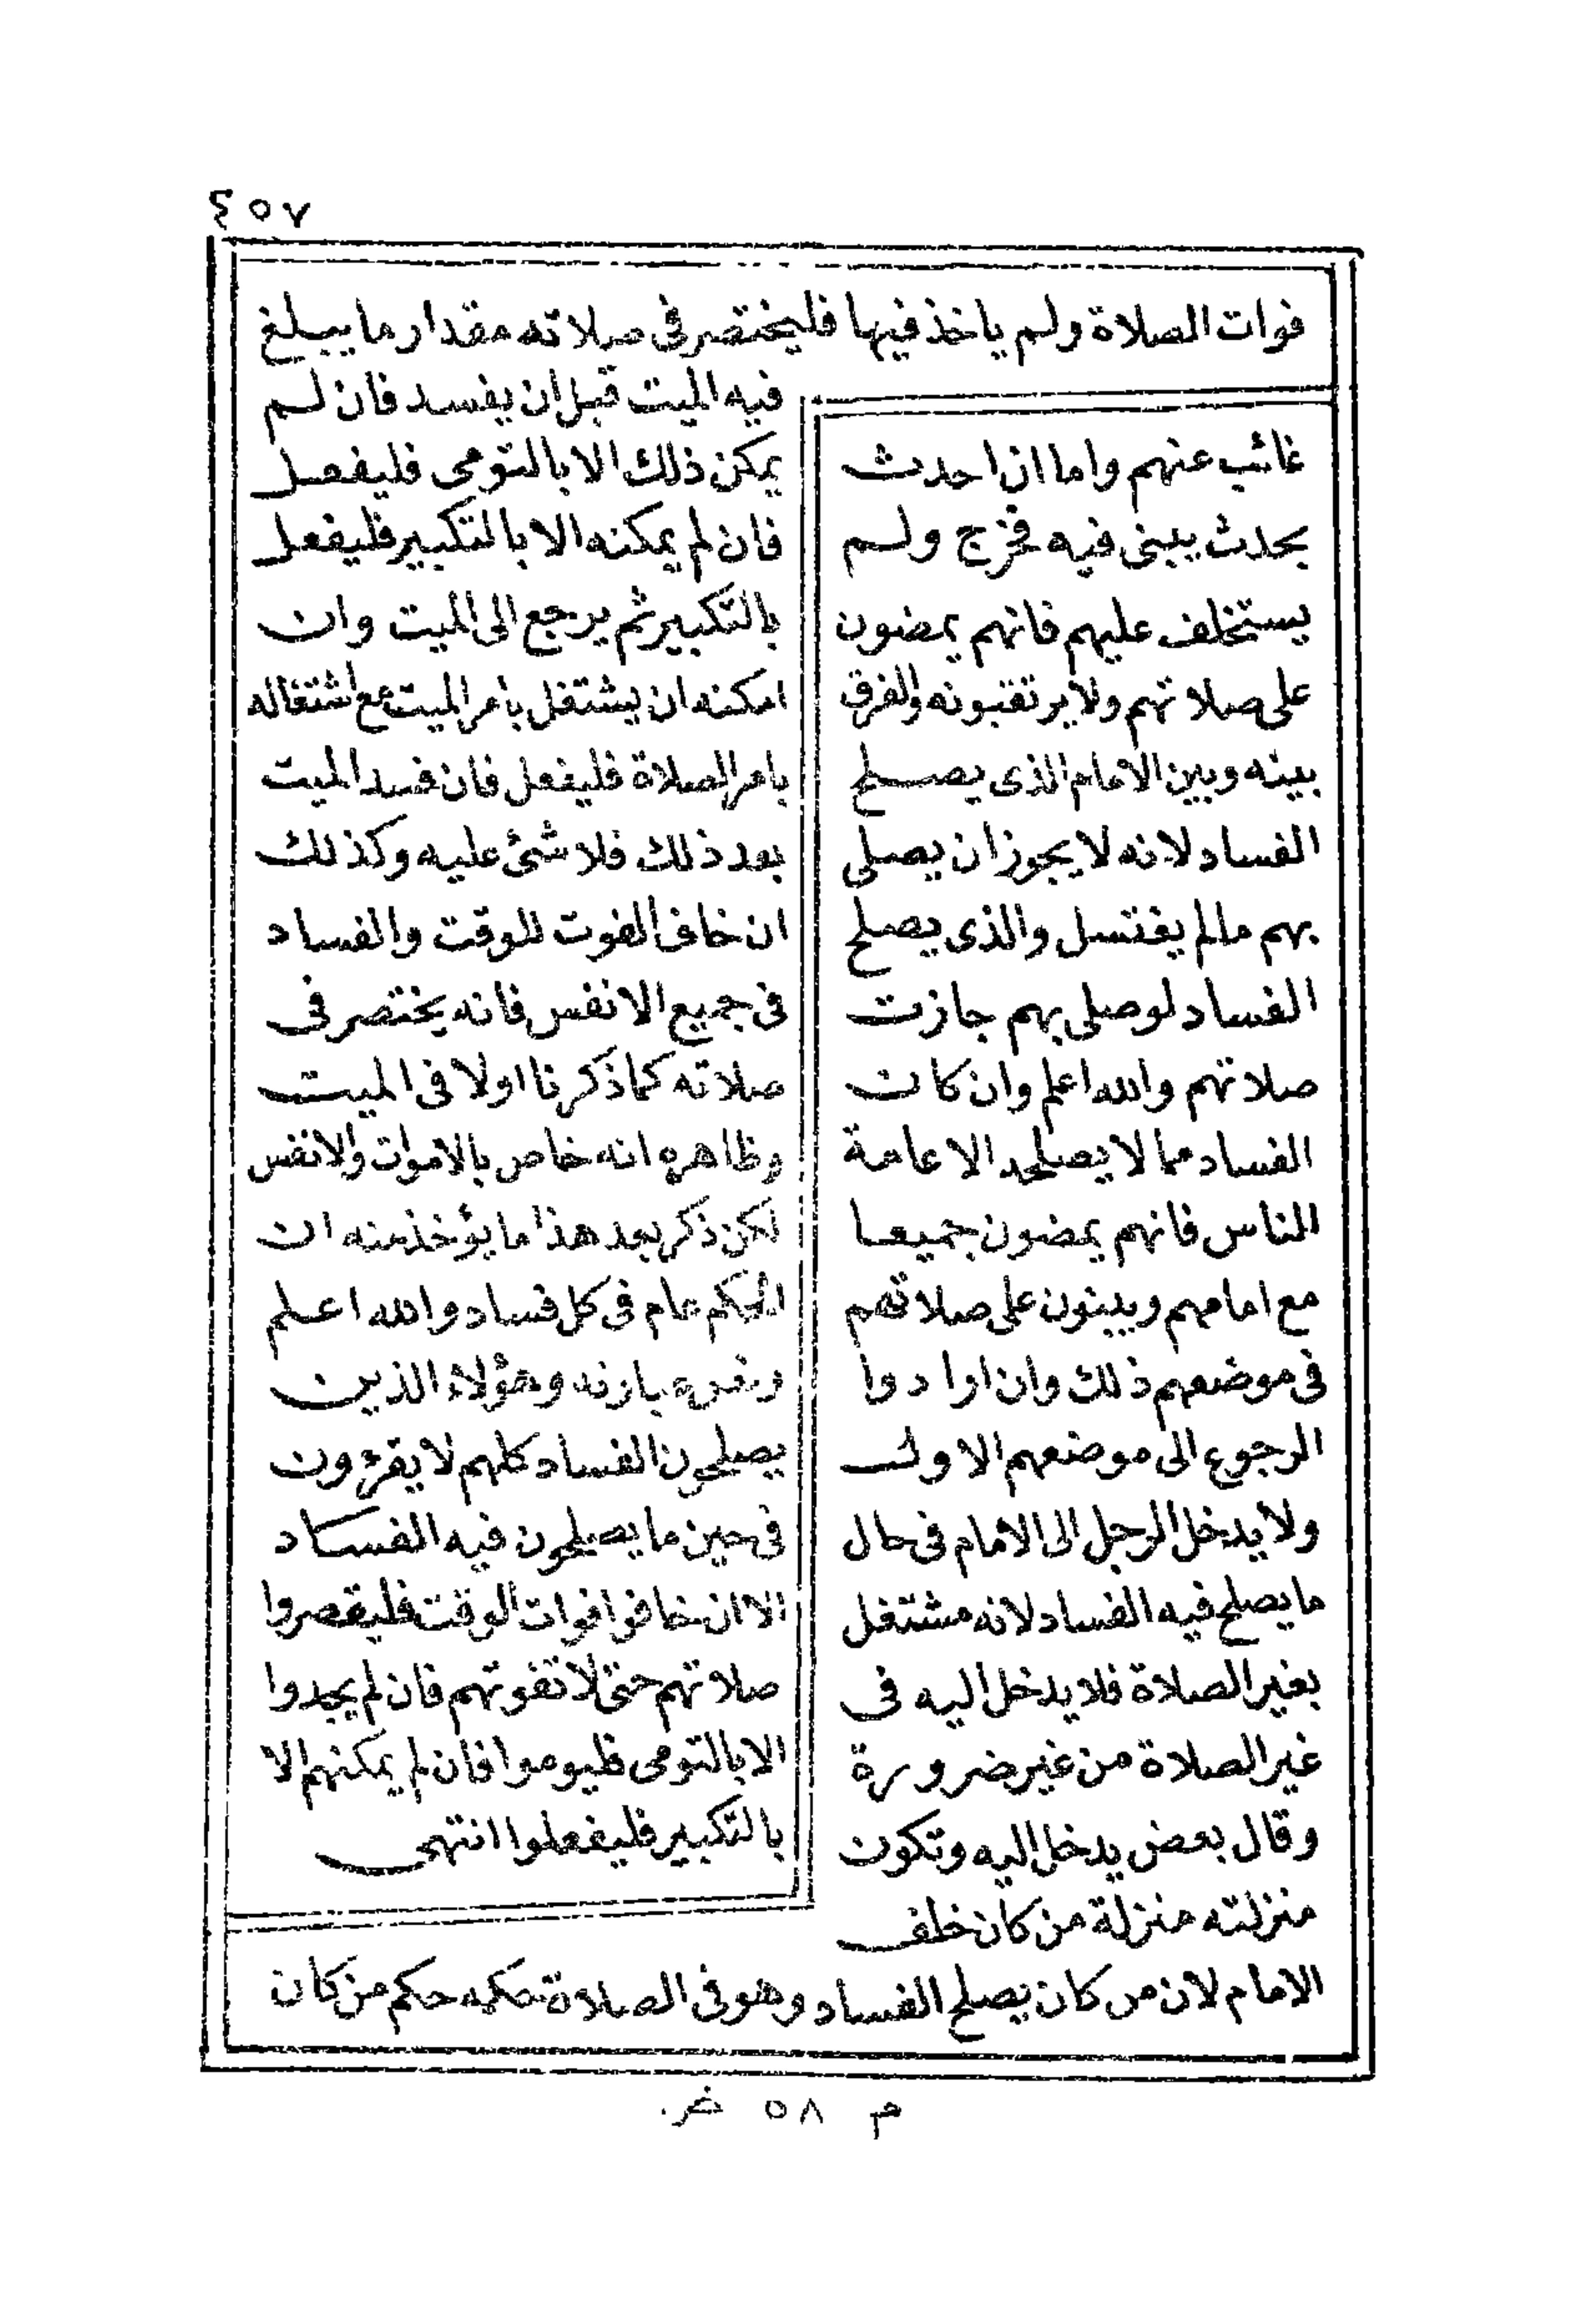 ٤٥٧
فوات الصلاة ولم ياخذ فيها فليختصر فى صلاته مقدار ما يبلغ
غائب عنهم واما ان احدث
بحدث يبنى فيه فخرج ولم
يستخلف عليهم فانهم يمضون
على صلاتهم ولا يرتقبونه والفرق
بينه وبين الامام الذى يصلح
الفساد لانه لا يجوز ان يصلى
بهم مالم يغتسل والذى يصلح
الفساد لو صلى بهم جازت
صلاتهم والله اعلم وان كان
الفساد مما لا يصلحه الا عامة
الناس فانهم يمضون جميعا
مع امامهم ويبنون على صلاتهم
فى موضعهم ذلك وان ارادوا
الرجوع الى موضعهم الاول
ولا يدخل الرجل الى الامام فى حال
ما يصلح فيه الفساد لانه مشتغل
بغير الصلاة فلا يدخل اليه فى
غير الصلاة من غير ضرورة
وقال بعض يدخل اليه وتكون
منزلته منزلة من كان خلف
فيه الميت قبل ان يفسد فان لم
يمكن ذلك الا بالتومى فليفعل
فان لم يمكنه الا بالتكبير فليفعل
بالتكبير ثم يرجع الى الميت وان
امكنه ان يشتغل بامر الميت مع اشتغاله
بامر الصلاة فليفعل فان فسد الميت
بعد ذلك فلا شئ عليه وكذلك
ان خاف الفوت للوقت والفساد
فى جميع الانفس فانه يختصر فى
صلاته كما ذكرنا اولا فى الميت
وظاهره انه خاص بالاموات والانفس
لكن ذكر بعد هذا ما يؤخذ منه ان
الحكم عام فى كل فساد والله اعلم
ونصه بازنه وهؤلاء الذين
يصلحون الفساد كلهم لا يقرءون
فى حين ما يصلحون فيه الفساد
الا ان خافوا فوات الوقت فليقصروا
صلاتهم حتى لا تفوتهم فان لم يجدوا
الا بالتومى فليوموا فان لم يمكنهم الا
بالتكبير فليفعلوا انتهى
الامام لان من كان يصلح الفساد وهو فى الصلاة حكمه حكم من كان
م ٥٨ ض.